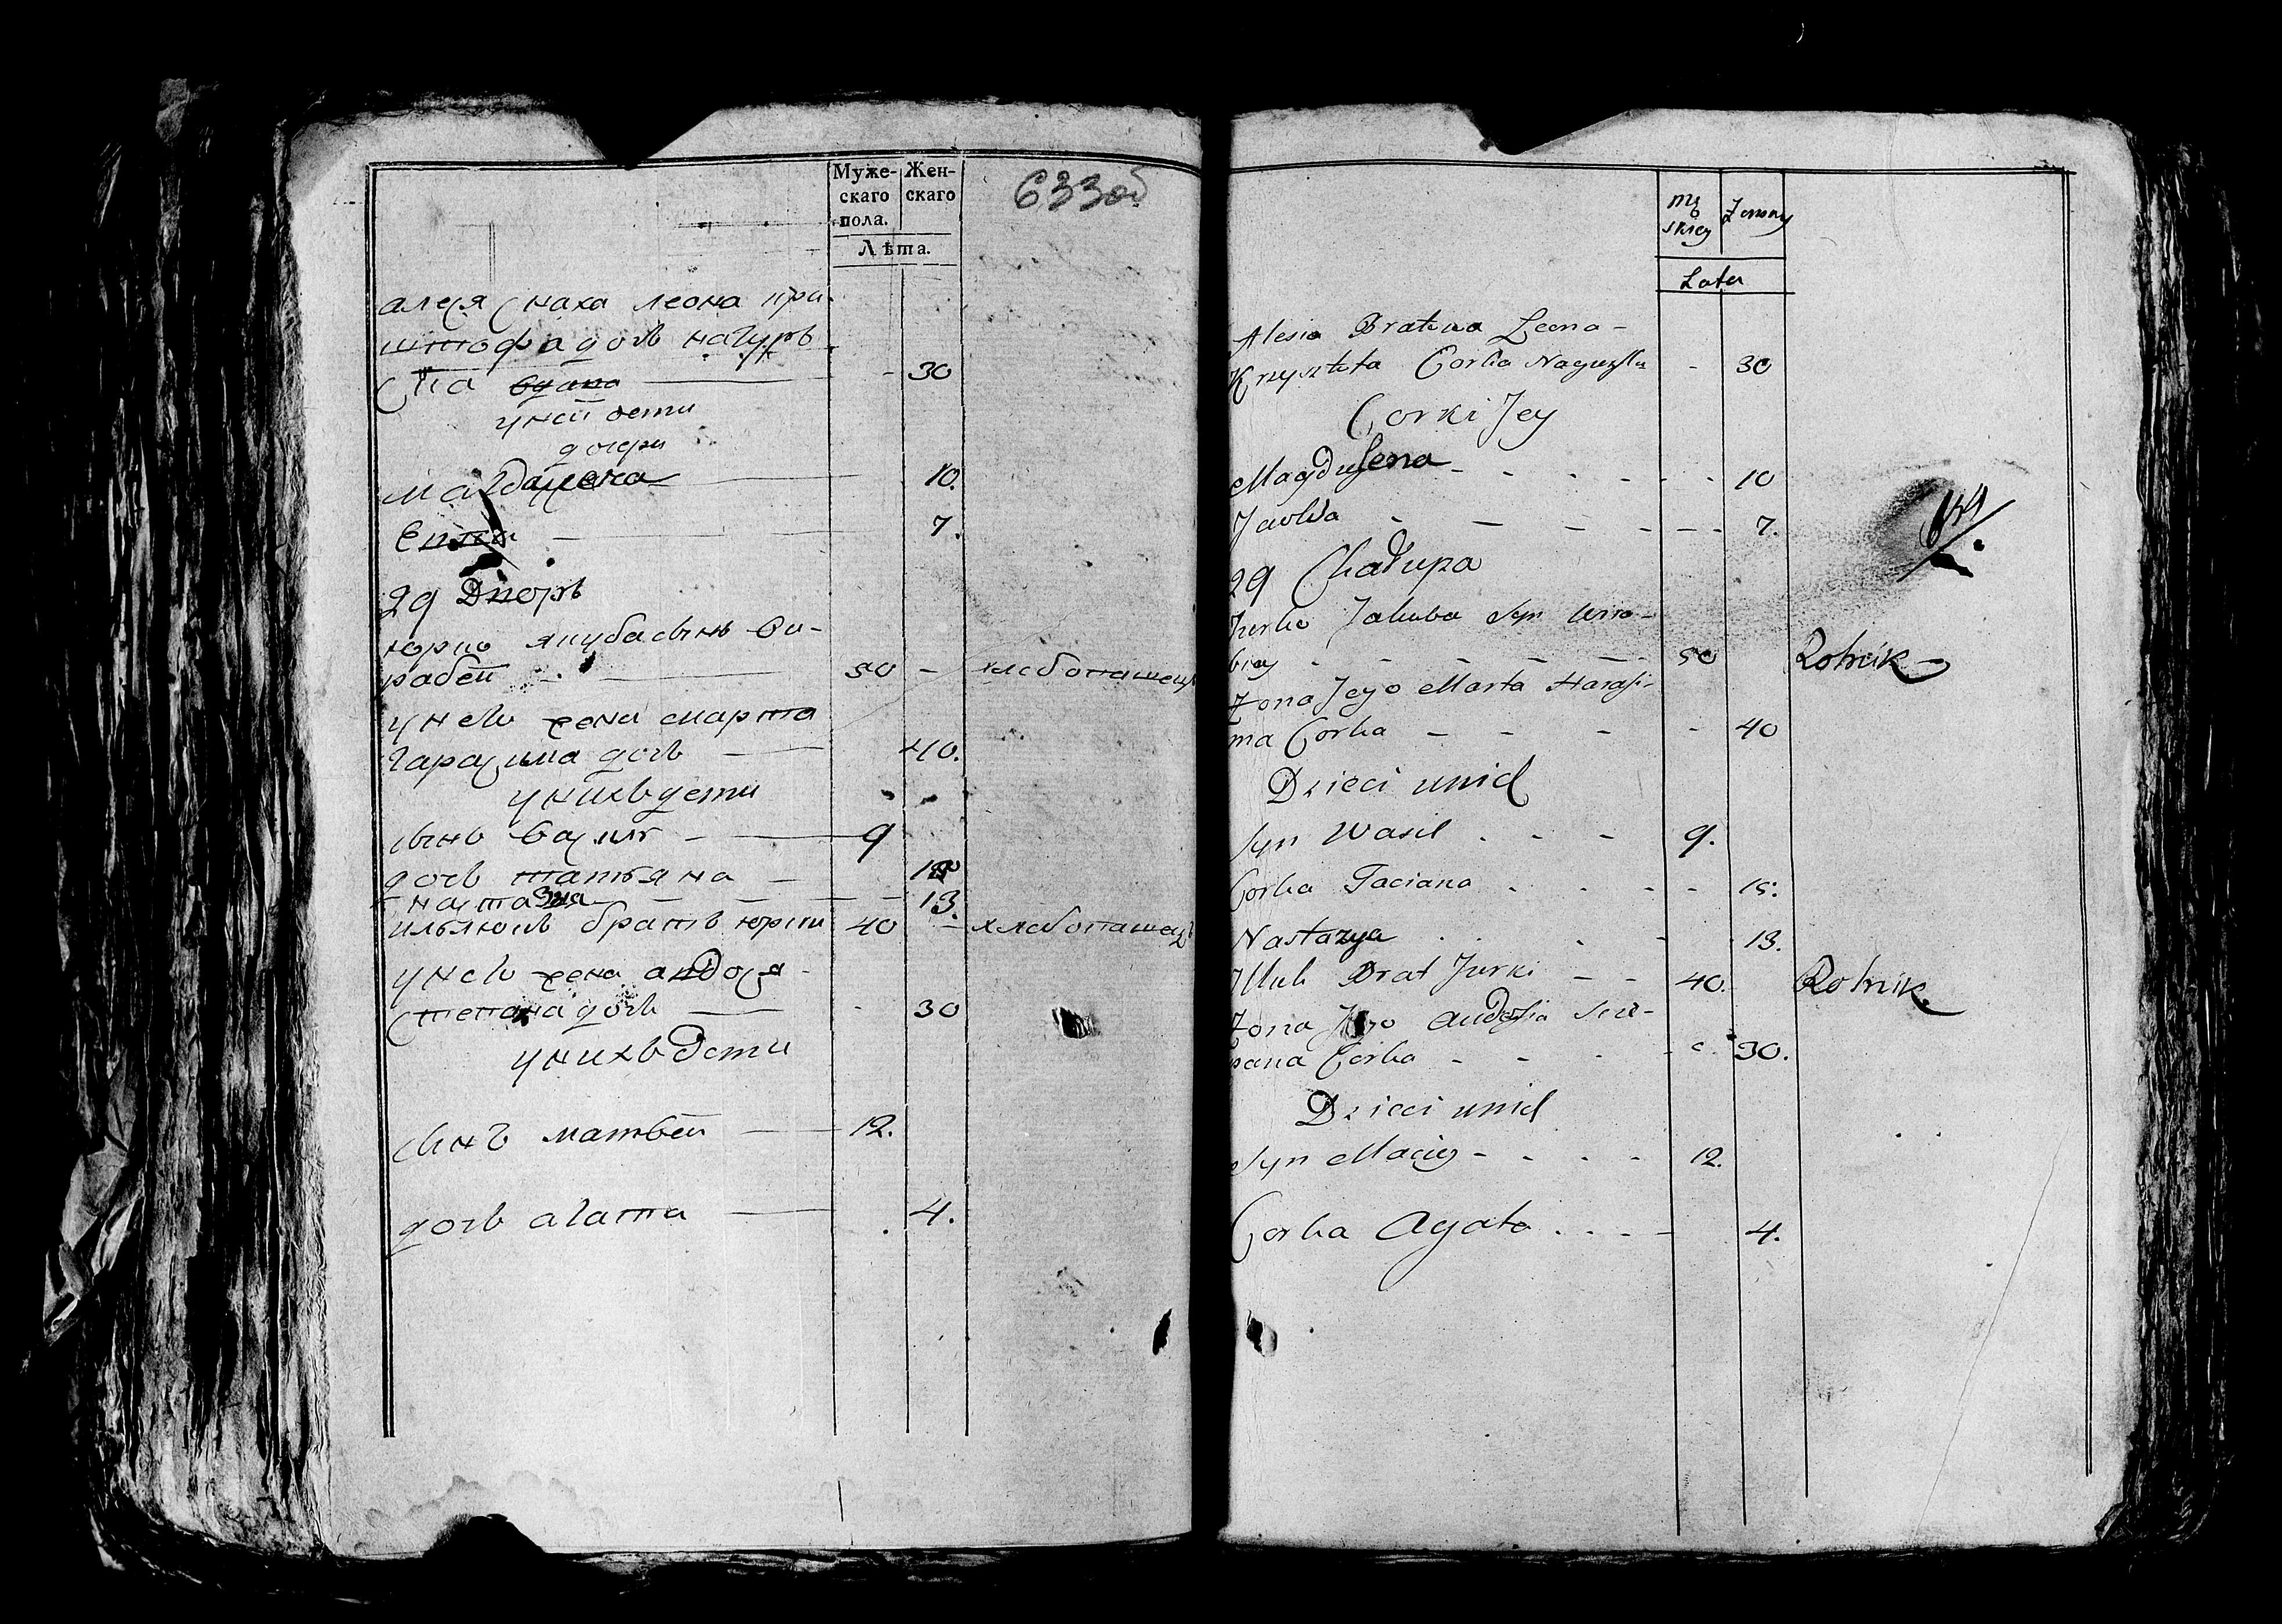 Муже-
скаго
пола.
Жен-
скаго
Лѣта.
633об
алеся снаха леона кри-
штофа дочь нагурь
ска вдана 30
у неи дети
дочери
магдалена 10.
Евка 7.
29 Дворъ
юрко якуба сынъ ви-
рабеи 50 - хлебопашецъ
у него жена марта
гарасима дочь 40.
у нихъ дети
сынъ василь 9
дочь татьяна
настазия 13.
ильлюкъ братъ юрки 40 - хлебопашецъ
у него жена авдося
степана дочь - 30
у нихъ дети
сынъ матвеи 12.
дочь агата 4.
Mę
skiey
Zenskiey
Lata
Alesia Bratowa Leona -
Krzysztofa Corka Nagurska - 30
Corki Jey
Magdalena - 10
Jewka - 7.
29 Chałupa
Jurko Jakuba Syn Wiro-
biey - 50 Rolnik
Zona Jego Marta Harasi-
ma Corka - 40
Dzieci unich
Syn Wasil - 9.
Corka Taciana - 15.
Nastazya - 13.
Illuk Brat Jurki - 40. Rolnik
Zona Jego Audosia Scie-
pana Corka - 30.
Dzieci unich
Syn Maciey - 12.
Corka Agata - 4.